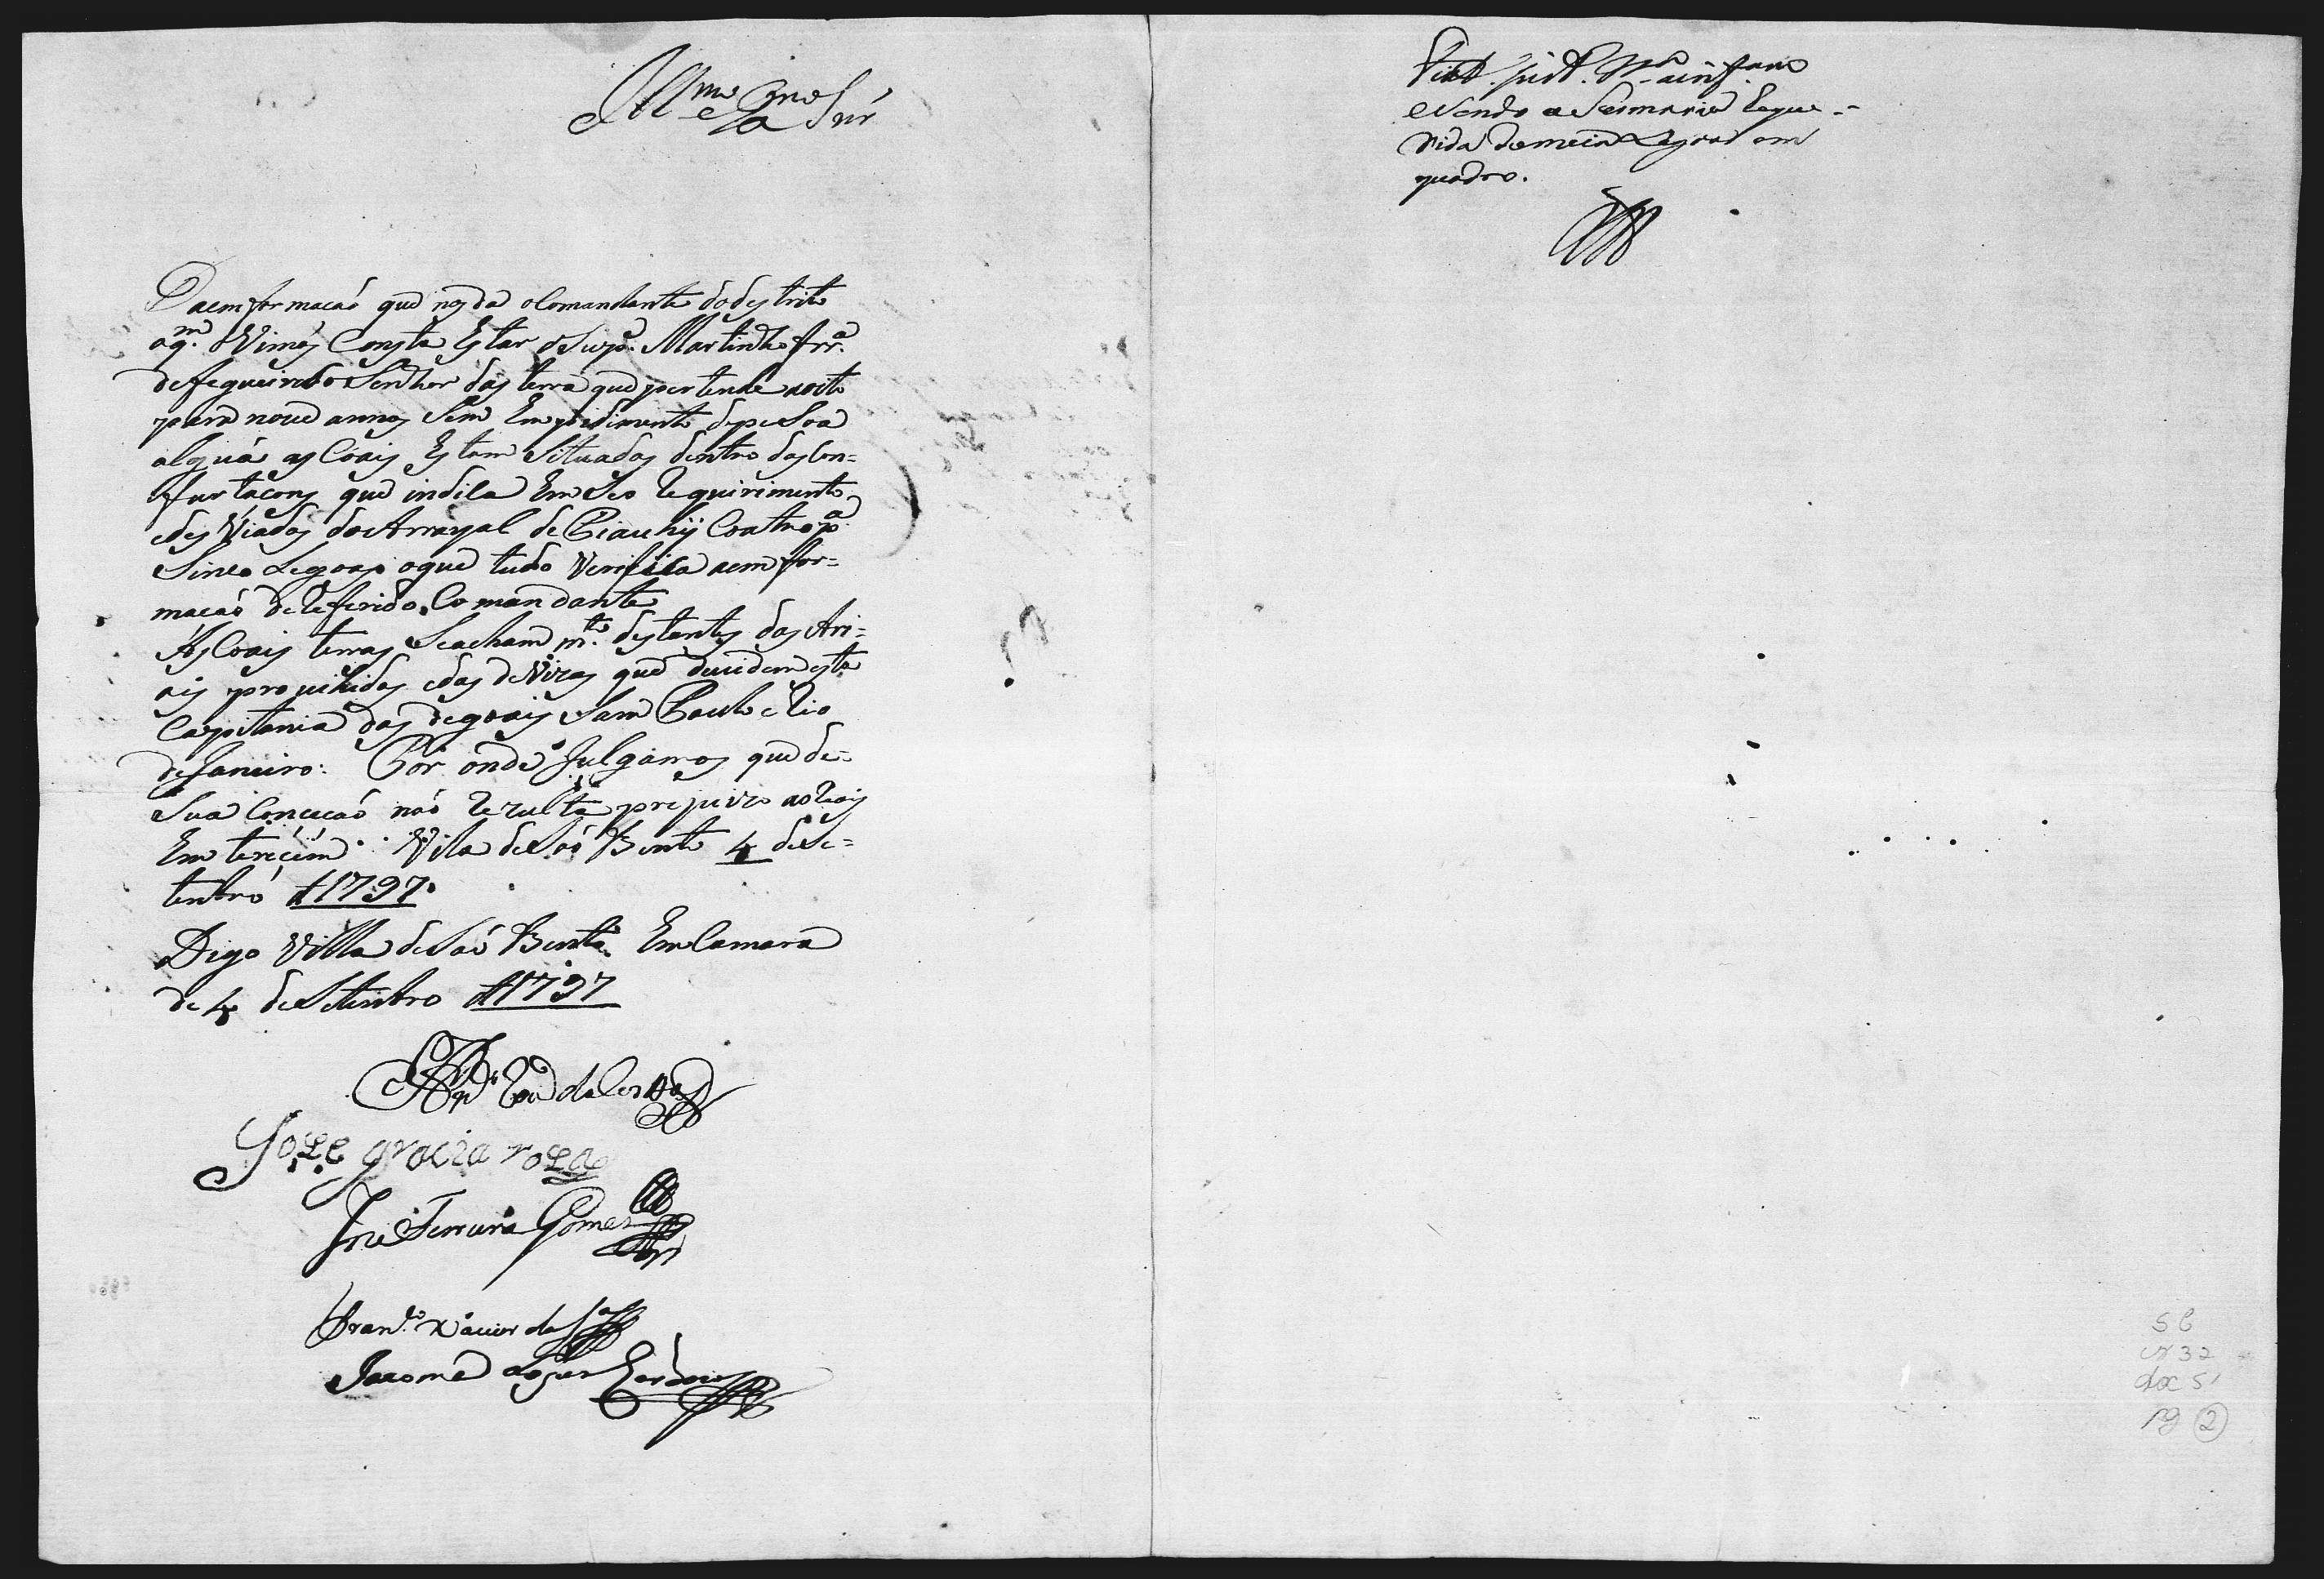 Illmo e Exmo Snr
Daemformacaó que nos da oComandante dodestrito
aqm. Ovimos Consta Estar oSupe. Martinho Frra.
deFegueiredo Senhor das terra que pertende aoito
para nove annos Sem Empidimento depesoa
alguá as Coais Estam Situadas dentro das Con=
furtacons que indica Em Seo Requirimento
edesViadas do Arrayal de Piauhy Coatro pa.
Sinco Legoas oque tudo Verifica aemfor=
macaó do Referido Comandante
As Coais terras Seacham mto. destantes das Ari=
ais proyhidas edas deVizas que devidem esta
Capitania das degoais Sam Paulo e Rio
de Janeiro: Por onde Julgamos que de=
Sua Concecaó naó Rezulta prejuizo as Reais
Em terecem. Vila de Saó Bento 4 de Se=
tembro d1797
Digo Villa de Saó Bento Em Camara
de 4 de Setembro d1797
da Costa
Joze gracia roza
Joze Ferreira Gomes
Franco. Xavier da Sa
Jacome Lopes Cardozo
a inform
e Sendo a Sesmaria Reque=
rida de meia Legoa em
quadro.
SC
cx 32
doc 51
pg 2